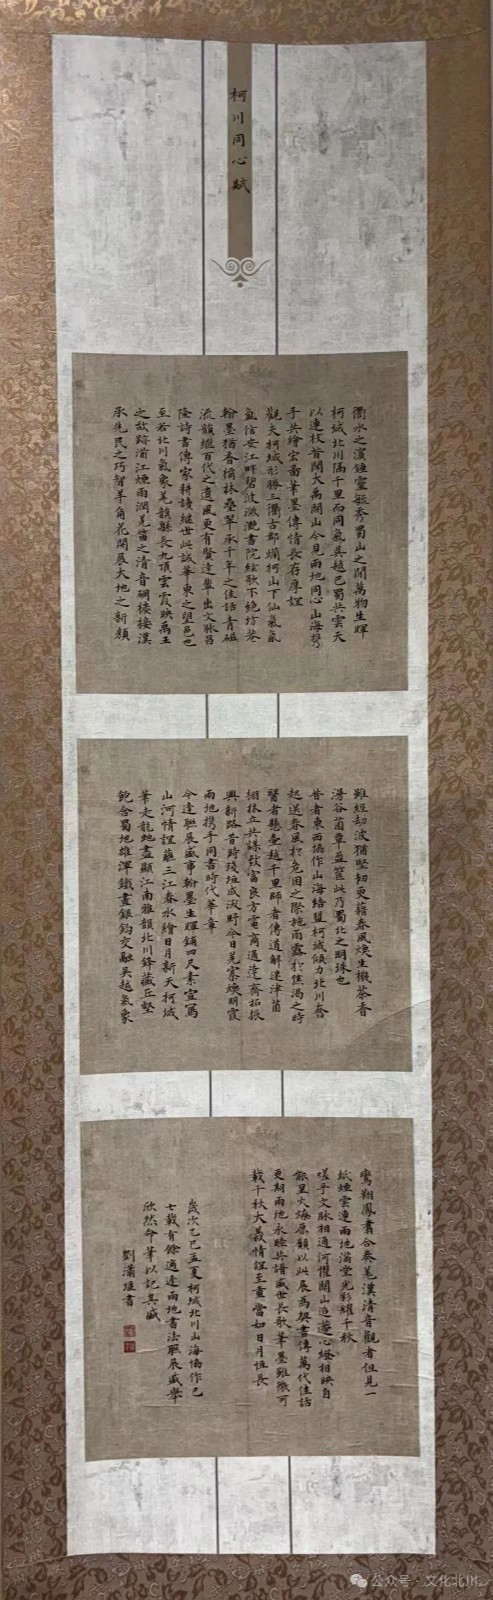 柯川同心賦
衢水之濱鍾靈毓秀蜀山之間萬物生暉
柯城北川隔千里而同氣吳越巴蜀共雲天
以連枝昔聞大禹開山今見兩地同心山海攜
手共繪宏圖筆墨傳情長存厚誼
觀夫柯城形勝三衢古郡爛柯山下仙氣氤
氳信安江畔碧波瀲灩書院絃歌不絕坊巷
翰墨猶香橘林疊翠承千年之佳話青磁
流韻繼百代之遺風更有賢達輩出文脈昌
隆詩書傳家耕讀繼世此誠華東之望邑也
至若北川氣象羌韻縣長九頂雲霞映禹王
之故跡湔江煙雨潤羌笛之清音碉樓接漢
承先民之巧智羊角花開展大地之新顏
雖經劫波猶堅韌更藉春風煥生機茶香
湯谷菌蕈盈筐此乃蜀北之明珠也
昔者東西協作山海結盟柯城傾力北川奮
起送春風於危困之際施雨露於焦渴之時
醫者懸壺越千里師者傳道解迷津菌
棚林立共謀致富良方電商通達齊拓振
興新路昔時殘垣成沃野今日羌寨煥明霞
兩地攜手同書時代華章
今逢聯展盛事翰墨生暉鋪四尺素宣寫
山河情誼蘸三江春水繪日月新天柯城
筆走龍蛇盡顯江南雅韻北川鋒藏丘壑
飽含蜀地雄渾鐵畫銀鈎交融吳越氣象
鸞翔鳳翥合奏羌漢清音觀者但見一
紙煙雲連兩地滿堂光彩耀千秋
嗟乎文脈相通何懼關山迢遞心燈相映自
能星火燎原願以此展為契書傳萬代佳話
更期兩地永睦共譜盛世長歌筆墨雖微可
載千秋大義情誼至重當如日月恆長
歲次乙巳孟夏柯城北川山海協作已
七載有餘適逢兩地書法聯展盛舉
欣然命筆以記其盛
劉瀟雄書
公众号·文化北川